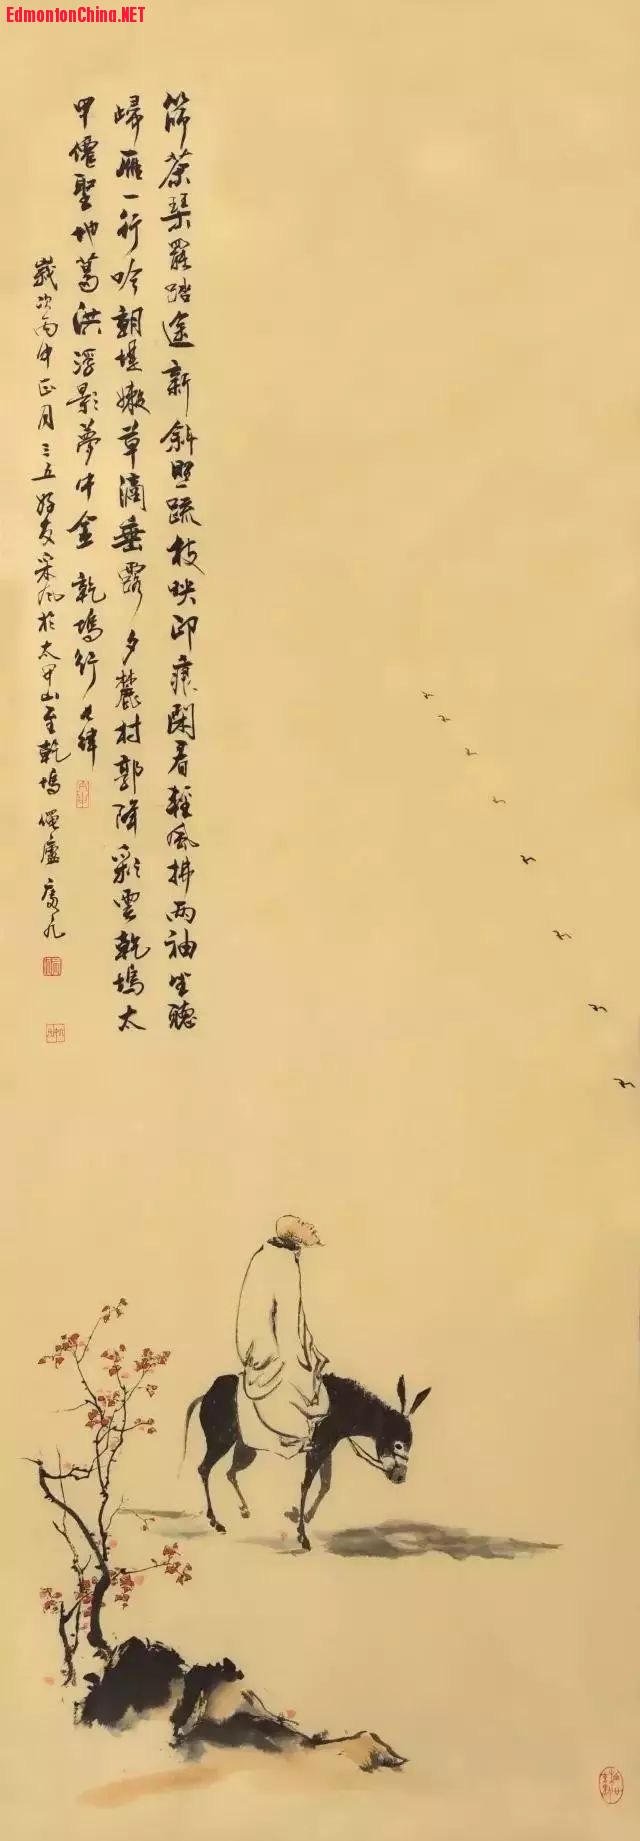 EdmontonChina.NET
篩茶琴罷踏途新斜照疏枝映印痕閑看輕風拂兩袖坐聽
歸雁一行吟朝堤嫩草滴垂露夕麓村郭降彩雲乾塢太
甲僊聖地葛洪浮影夢中金 乾塢行七律
歲次丙申正月三五好友采風於太甲山至乾塢 廬